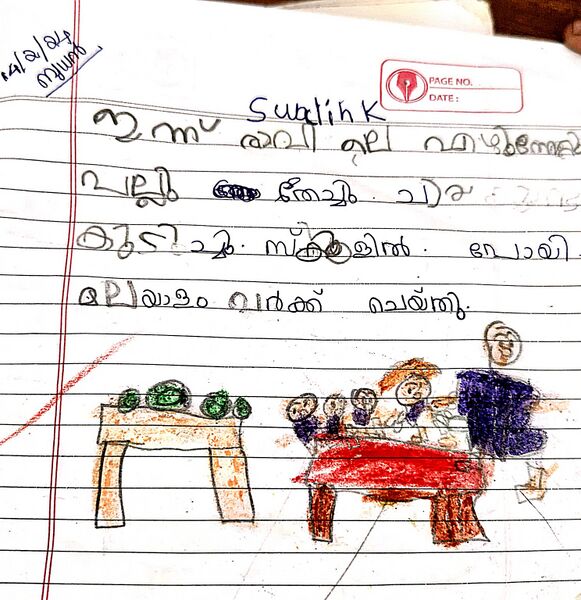 14/2/24
ബുധൻ
PAGE NO.
DATE :
Swalih K
ഇന്ന് രാവിലെ എഴുന്നേറ്റു
പല്ലു തേച്ചു. ചായ
കുടിച്ചു. സ്കൂളിൽ. പോയി.
മലയാളം വർക്ക് ചെയ്തു.